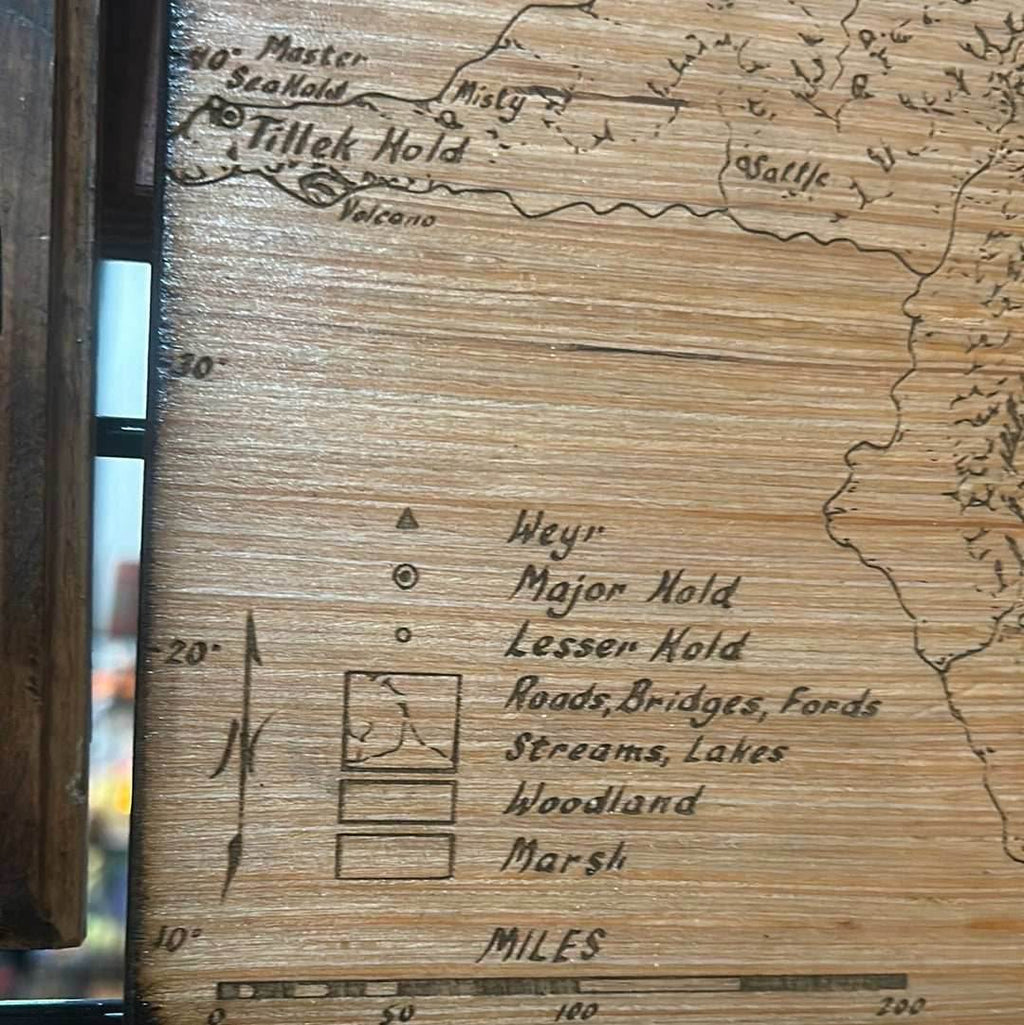 40° Master
SeaHold
Misty
Tillek Hold
Saltle
Volcano
30°
Weyr
Major Hold
Lesser Hold
20°
Roads, Bridges, Fords
Streams, Lakes
N
Woodland
Marsh
10°
MILES
0 50 100 200